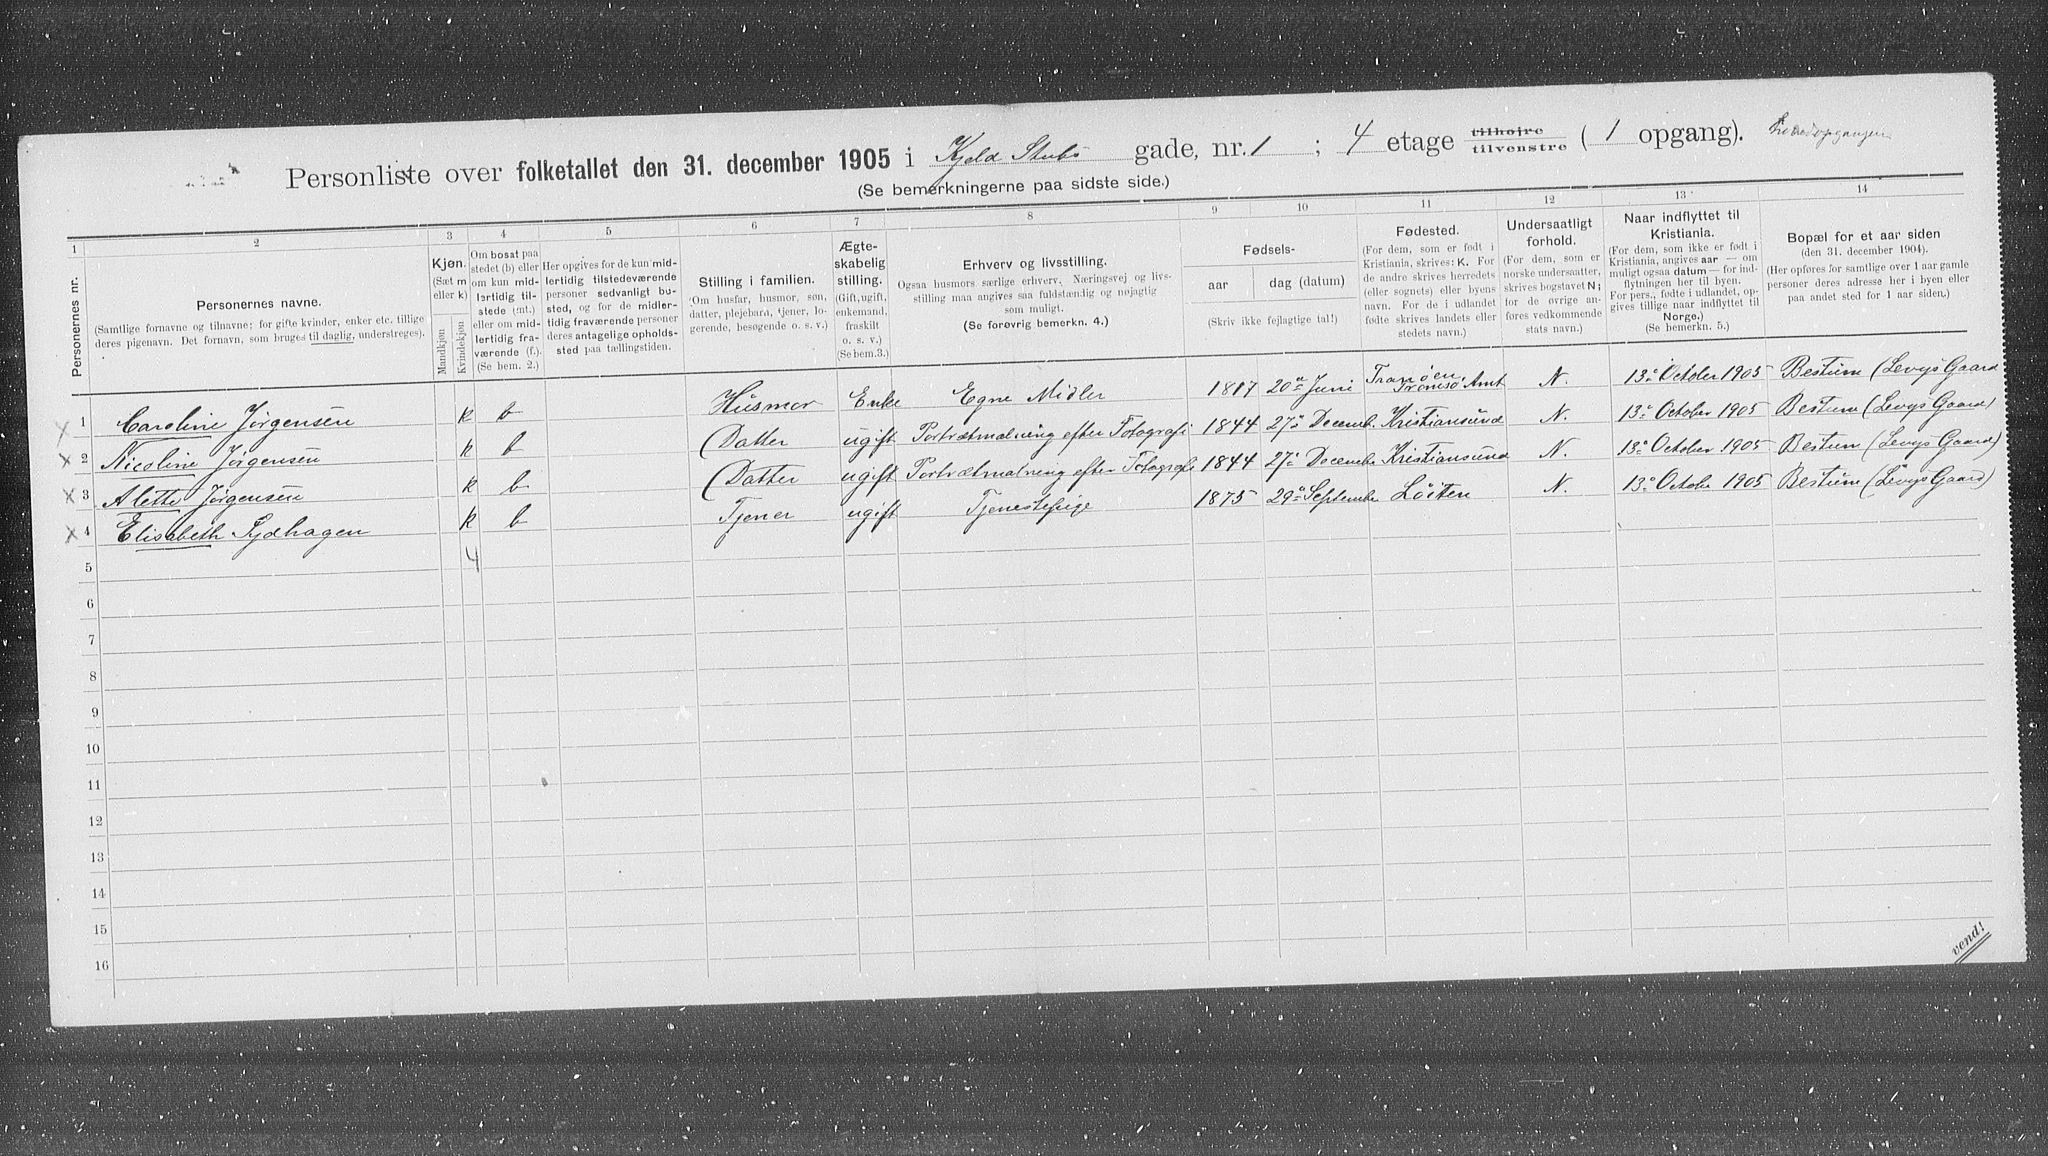 Personliste over folketallet den 31. december 1905 i Kjeld Stubs gade, nr. 1 ; 4 etage tilhøjre tilvenstre ( 1 opgang). Hovedopgangen
(Se bemerkningerne paa sidste side.)
1 2 3 4 5 6 7 8 9 10 11 12 13 14
Personernes nr.
Personernes navne.
(Samtlige fornavne og tilnavne; for gifte kvinder, enker etc. tillige
deres pigenavn. Det fornavn, som bruges til daglig, understreges).
Kjøn.
(Sæt m
eller k)
Mandkjøn
Kvindekjøn
Om bosat paa
stedet (b) eller
om kun mid-
lertidig til-
stede (mt.)
eller om mid-
lertidig fra-
værende (f.).
(Se bem. 2.)
Her opgives for de kun mid-
lertidig tilstedeværende
personer sedvanligt bo-
sted, og for de midler-
tidig fraværende personer
deres antagelige opholds-
sted paa tællingstiden.
Stilling i familien.
(Om husfar, husmor, søn,
datter, plejebarn, tjener, lo-
gerende, besøgende o. s. v.)
Ægte-
skabelig
stilling.
(Gift, ugift,
enkemand,
fraskilt
o. s. v.)
(Se bem.3.)
Erhverv og livsstilling.
Ogsaa husmors særlige erhverv. Næringsvej og livs-
stilling maa angives saa fuldstændig og nøjagtig
som muligt.
(Se forøvrig bemerkn. 4.)
Fødsels-
aar
dag (datum)
(Skriv ikke fejlagtige tal!)
Fødested.
(For dem, som er født i
Kristiania, skrives: K. For
de andre skrives herredets
(eller sognets) eller byens
navn. For de i udlandet
fødte skrives landets eller
stedets navn.)
Undersaatligt
forhold.
(For dem, som er
norske undersaatter,
skrives bogstavet N;
for de øvrige an-
føres vedkommende
stats navn.)
Naar indflyttet til
Kristiania.
(For dem, som ikke er født i
Kristiania, angives aar — om
muligt ogsaa datum — for ind-
flytningen her til byen.
For pers., fødte i udlandet, op-
gives tillige naar indflyttet til
Norge.)
(Se bemerkn. 5.)
Bopæl for et aar siden
(den 31. december 1904).
(Her opføres for samtlige over 1 aar gamle
personer deres adresse her i byen eller
paa andet sted for 1 aar siden.)
x 1 Caroline Jørgensen k b Husmor Enke Egne Midler 1817 20de Juni Tranøen Tromsø Amt N. 13de October 1905 Bestum (Levys Gaard
x 2 Nicoline Jørgensen k b (Datter ugift Portrætmalning efter Fotografi 1844 27de Decemb. Kristiansund N. 13de October 1905 Bestum (Levys Gaard)
x 3 Alette Jørgensen k b (Datter ugift Portrætmalning efter Fotografi 1844 27de Decembe Kristiansund N. 13de October 1905 Bestum (Levys Gaard)
x 4 Elisabeth Sydhagen k b Tjener ugift Tjenestepige 1875 29de Septembe Løiten N. 13de Octobe 1905 Bestum (Levys Gaard)
5 4
6
7
8
9
10
11
12
13
14
15
16
vend!